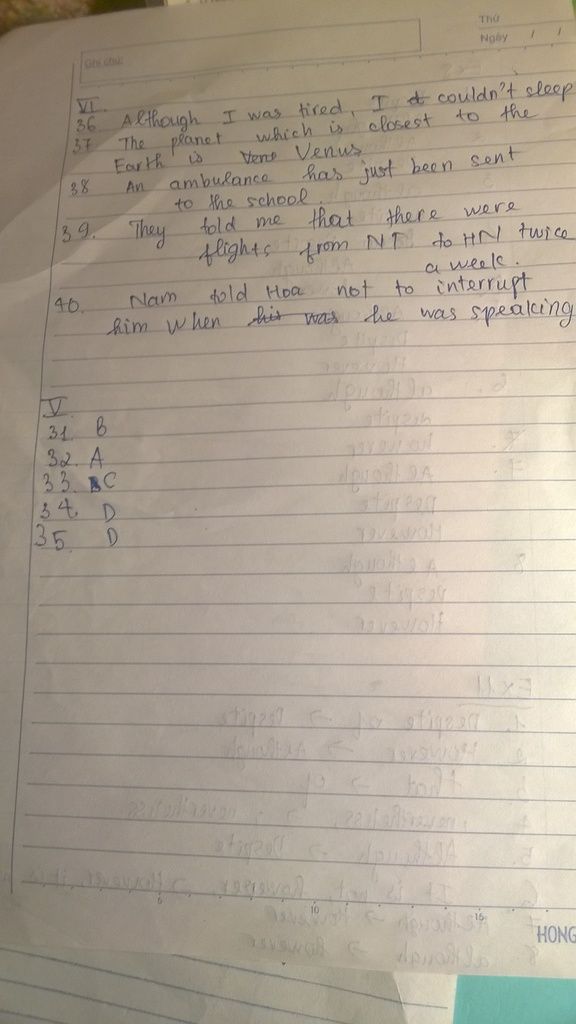 Thứ
Ngày / /
Ghi chú:
VI.
36 Although I was tired, I couldn't sleep
37 The planet which is closest to the
Earth is Venus
38 An ambulance has just been sent
to the school.
39. They told me that there were
flights from NT to HN twice
a week.
40. Nam told Hoa not to interrupt
him when he was speaking
V.
31. B
32. A
33. C
34. D
35. D
5
10
15
HONG